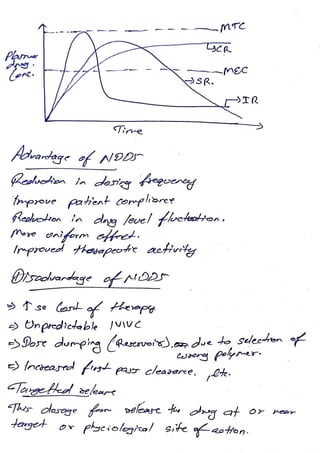 MTC
CR
Plasma drug. Conc.
MEC
SR.
IR
Time
Advantage of NDDS
Reduction in dosing frequency
Improve patient compliance
Reduction in drug level fluctuation.
More uniform effect.
Improved therapeutic activity
Disadvantage of NDDS
⇒ ↑ se Cost of therapy
⇒ Unpredictable IVIVC
⇒ Dose dumping (Reservoir). due to selection of
wrong polymer.
⇒ Increased first pass clearance, etc.
Targetted release
This dosage form release the drug at or near
target or physiological site of action.